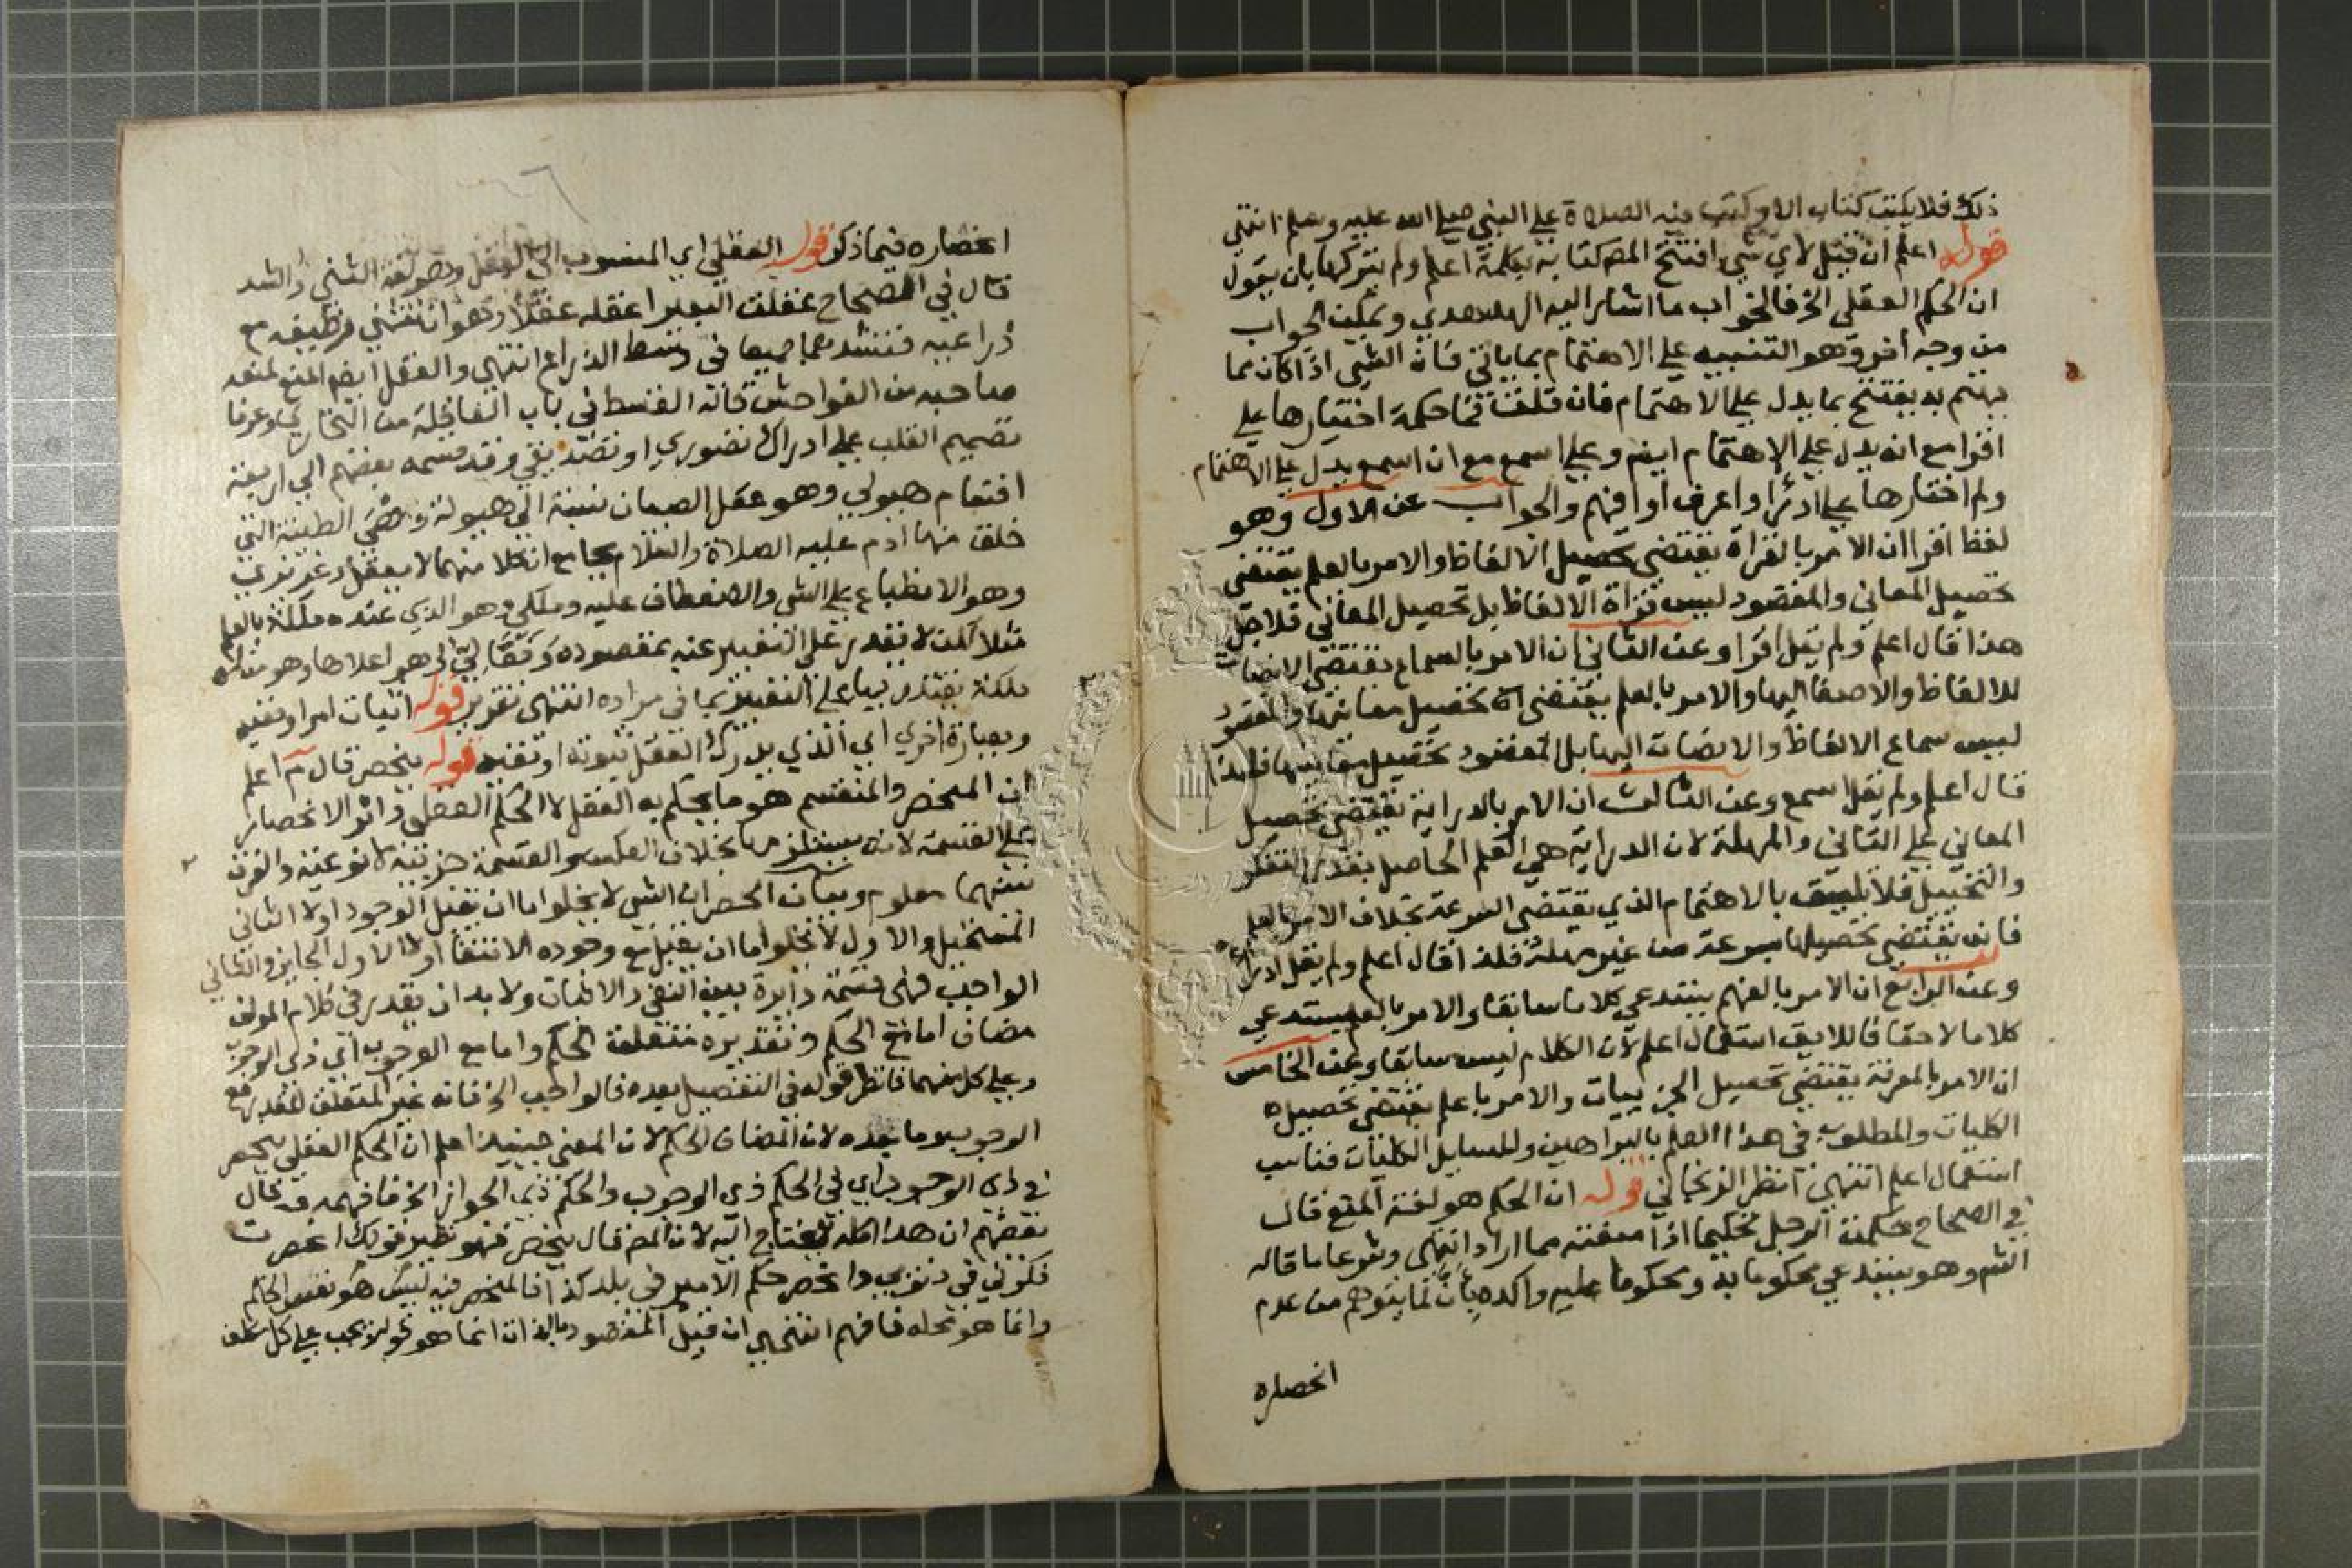 ذلك فلا يكتب كتاب الا وكتب فيه الصلاة علي النبي صلي الله عليه وسلم انتهي
قوله اعلم ان قيل لاي شي افتتح المصـ كتابه بكلمة اعلم ولم يتركها بان يقول
ان الحكم العقلي الخ فالجواب ما اشار اليه الهدهدي ويمكن الجواب
من وجه اخر وهو التنبيه علي الاهتمام بما ياتي فان الشي اذا كان مما
يهتم به يفتتح بما يدل علي الاهتمام فان قلت فما حكمة اختيارها علي
اقرا مع انه يدل علي الاهتمام ايضا وعلي اسمع مع ان اسمع يدل علي الاهتمام
ولم اختارها علي ادرا او اعرف او افهم والجواب عن الاول وهو
لفظ اقرا ان الامر بالقراة يقتضي تحصيل الالفاظ والامر بالعلم يقتضي
تحصيل المعاني والمقصود ليس قراة الالفاظ بل تحصيل المعاني فلاجل
هذا قال اعلم ولم يقل اقرا وعن الثاني ان الامر بالسماع يقتضي الانصات
للالفاظ والاصغا اليها والامر بالعلم يقتضي تحصيل معانيها والمقصود
ليس سماع الالفاظ والانصات اليها بل المقصود تحصيل معانيها فلهذا
قال اعلم ولم يقل اسمع وعن الثالث ان الامر بالدراية يقتضي تحصيل
المعاني علي التاني والمهلة لان الدراية هي العلم الحاصل بعد التفكر
والتخييل فلا يليق بالاهتمام الذي يقتضي السرعة بخلاف الامر بالعلم
فانه يقتضي تحصيلها بسرعة من غير مهلة فلذا قال اعلم ولم يقل ادرا
وعن الرابع ان الامر بالفهم يستدعي كلاما سابقا والامر بالعلم يستدعي
كلاما لاحقا فاللايق استعمال اعلم لان الكلام ليس سابقا وعن الخامس
ان الامر بالمعرفة يقتضي تحصيل الجزييات والامر باعلم يقتضي تحصيل
الكليات والمطلوب في هذا العلم بالبراهين والمسايل الكليات فناسب
استعمال اعلم انتهي انظر الزنجاني قوله ان الحكم هو لغة المنع قال
في الصحاح حكمت الرجل تحكيما اذا منعته مما اراد انتهي وشرعا ما قاله
الشـ وهو يستدعي محكوما به ومحكوما عليه واكده بان لما يتوهم من عدم
انحصاره
انحصاره فيما ذكر قوله العقلي اي المنسوب الي العقل وهو لغة الثني والشد
قال في الصحاح عقلت البعير اعقله عقلا وهو ان تثني وظيفه مع
ذراعيه فتشدهما جميعا في وسط الذراع انتهي والعقل ايضا المنع لمنعه
صاحبه من الفواحش قاله القسطـ في باب العاقلة من البخاري وعرفا
تصميم القلب علي ادراك تصوري او تصديقي وقد قسمه بعضهم الي اربعة
اقسام هيولي وهو عقل الصبيان نسبة الي هيولة وهي الطينة التي
خلق منها ادم عليه الصلاة والسلام بجامع ان كلا منهما لا يعقل وغريزي
وهو الانطباع علي الشي والانعطاف عليه وملكي وهو الذي عنده ملكة بالعلم
مثلا لكن لا يقدر علي التعبير عنه بمقصوده وهو اعلاها وهو من له
ملكة يقتدر بها علي التعبير بما في مراده انتهي تقرير قوله اثبات امر او نفيه
وبعبارة اخري اي الذي يدرك العقل ثبوته او نفيه قوله ينحصر قال م اعلم
ان المنحصر والمنقسم هو ما يحكم به العقل لا الحكم العقلي واثر الانحصار
علي القسمة لانه يستلزمها بخلاف العكس والقسمة حزيية لا نوعية والفرق
بينهما معلوم وبيان الحصر ان الشي لا يخلوا اما ان يقبل الوجود اولا الثاني
المستحيل والاول لا يخلوا اما ان يقبل مع وجوده الانتفا اولا الاول الجايز والثاني
الواجب فهي قسمة دايرة بين النفي والاثبات ولا بد ان يقدر في كلام المولف
مضاف اما مع الحكم وتقديره متعلق الحكم واما مع الوجوب اي ذي الوجوب
وعلي كل منهما فانظر قوله في التفصيل بعده فالواجب الخ فانه غير المتعلق المقدر مع
الوجوب وما بعده لان المضاف للحكم لان المعني حينيذ اعلم ان الحكم العقلي ينحصر
في ذي الوجوب اي في الحكم ذي الوجوب والحكم ذي الجواز الخ فافهمه قد قال
بعضهم ان هذا كله لا يحتاج اليه لان المصـ قال ينحصر فهو نظير قولك انحصرت
فكرتي في ذنوبي وانحصر حكم الامير في بلد كذا فالمنحصر فيه ليس هو نفس الحاكم
وانما هو محله فافهم انتهي ان قيل المقصود بالذات انما هو قوله يجب علي كل مكلف